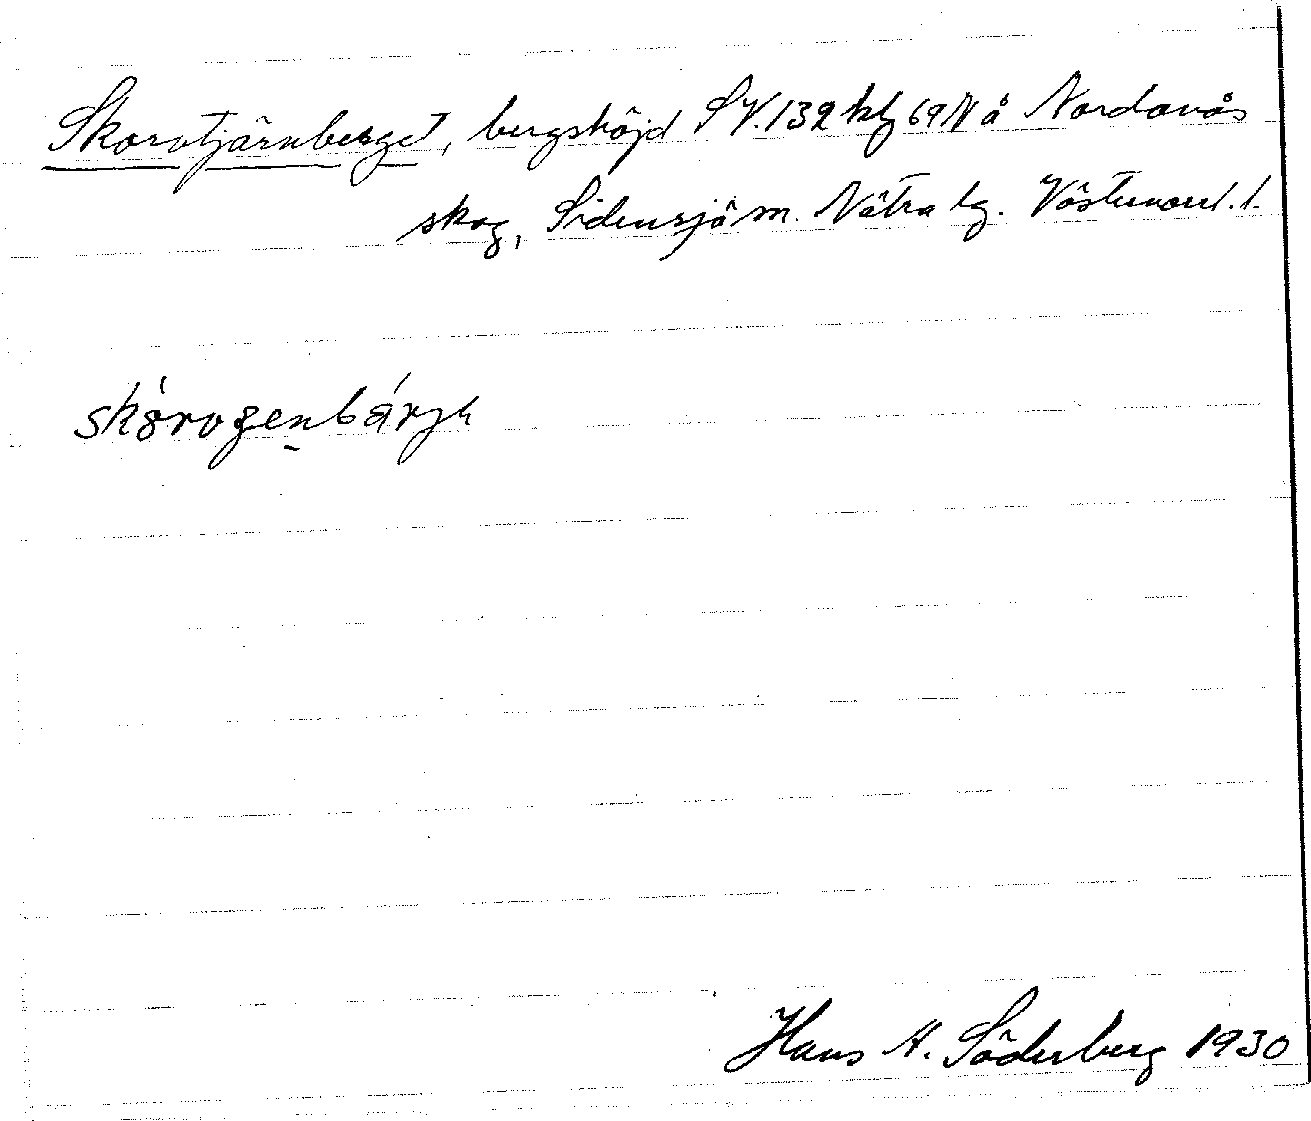 Skorotjärnberget, bergshöjd SV. 132 kbl 69 N å Nordanås
skog, Sidensjö sn. Nätra tg. Västernorrl. l.
Hans A. Söderberg 1930